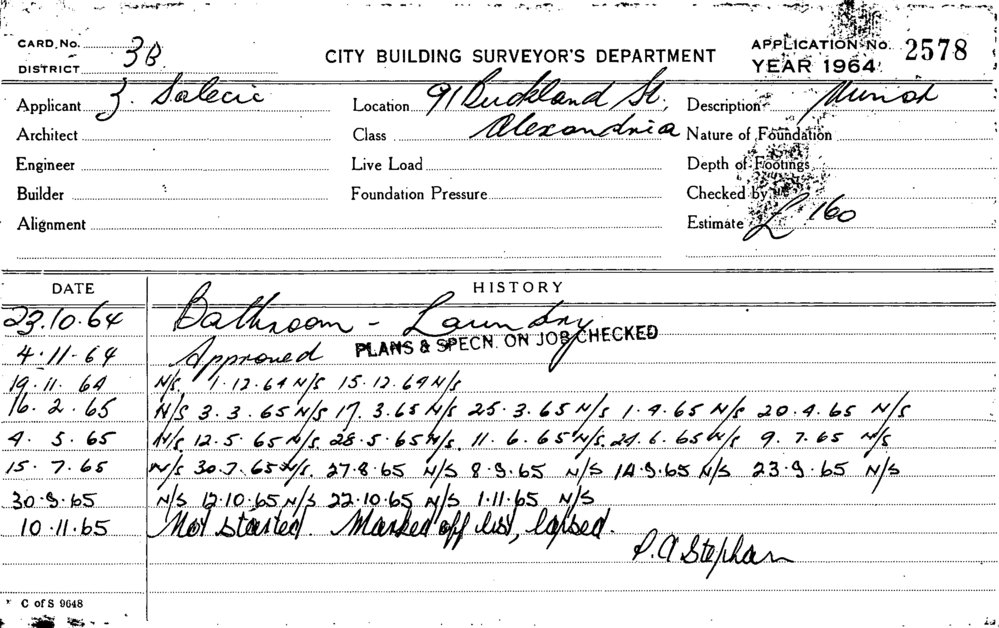 CARD. No.
DISTRICT 3B
CITY BUILDING SURVEYOR'S DEPARTMENT
APPLICATION No. 2578
YEAR 1964
Applicant Z. Salecic Location 91 Buckland St, Description Minor
Architect Class Alexandria Nature of Foundation
Engineer Live Load Depth of Footings
Builder Foundation Pressure Checked by
Alignment Estimate £ 160
DATE HISTORY
23.10.64 Bathroom - Laundry
PLANS & SPECN. ON JOB CHECKED
4.11.64 Approved
19.11.64 N/S. 1.12.64 N/S 15.12.64 N/S
16.2.65 N/S 3.3.65 N/S 17.3.65 N/S 25.3.65 N/S 1.4.65 N/S 20.4.65 N/S
4.5.65 N/S 12.5.65 N/S. 28.5.65 N/S. 11.6.65 N/S. 24.6.65 N/S 9.7.65 N/S
15.7.65 N/S 30.7.65 N/S. 27.8.65 N/S 8.9.65 N/S 14.9.65 N/S 23.9.65 N/S
30.9.65 N/S 12.10.65 N/S 22.10.65 N/S 1.11.65 N/S
10.11.65 Not started. Marked off list, lapsed.
P. A Stephan
C of S 9648